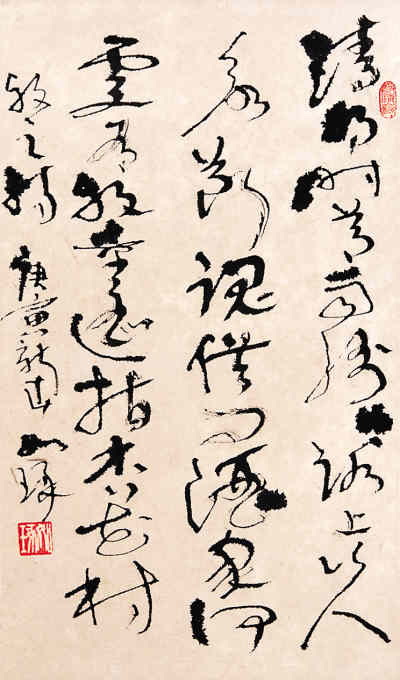 清明时节雨纷纷路上行人
欲断魂借问酒家何
處有牧童遥指杏花村
牧之诗 庚寅新春